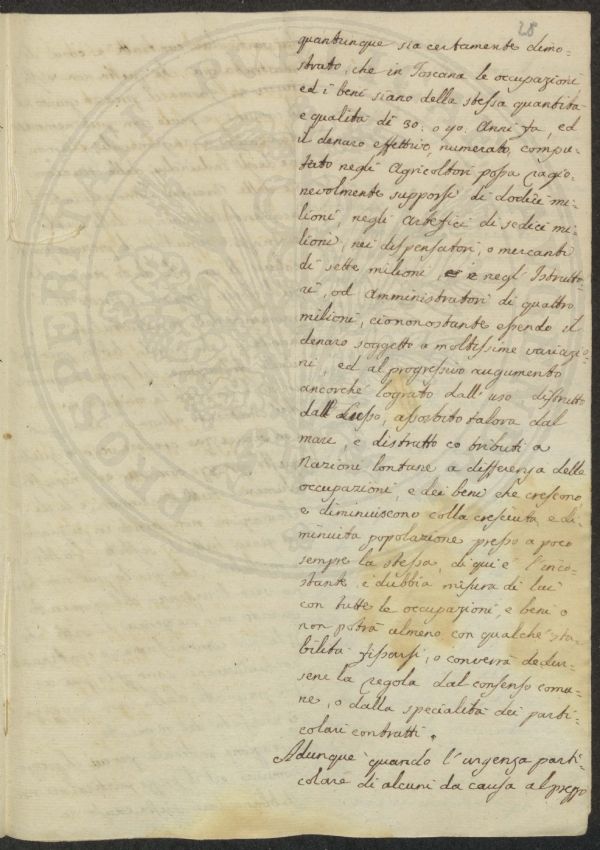 28
quantunque sia certamente dimo-
strato, che in Toscana le occupazioni
ed i beni siano della stessa quantità
e qualità di 30. o 40. Anni fa, ed
il denaro effettivo, numerato, compu-
tato negli Agricoltori possa ragio-
nevolmente supporsi di dodici mi-
lioni, negli Artefici di sedici mi-
lioni, nei dispensatori, o mercanti
di sette milioni, e negl' Istrutto-
ri, od Amministratori di quattro
milioni, ciononostante essendo il
denaro soggetto a moltissime variazio-
ni, ed al progressivo augumento
ancorchè lograto dall' uso distrutto
dall' Lusso, assorbito talora dal
mare, e distrutto co tributi a
Nazioni lontane a differenza delle
occupazioni, e dei beni che crescono
e diminuiscono colla cresciuta, e di-
minuita popolazione presso a poco
sempre la stessa, di qui è l'inco-
stante, e dubbia misura di lui
con tutte le occupazioni, e beni o
non potrà almeno con qualche sta-
bilità fissarsi, o converrà dedur-
sene la regola dal consenso comu-
ne, o dalla specialità dei parti-
colari contratti.
Adunque quando l'urgenza parti-
colare di alcuni da causa al prezzo
PROSPERITATI PUBL